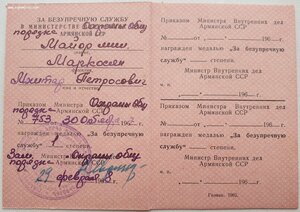 ЗА БЕЗУПРЕЧНУЮ СЛУЖБУ
В МИНИСТЕРСТВЕ Охраны общ
порядка АРМЯНСКОЙ ССР
Майор мил.
Маркосян
Мкитар Петросович
имя и отчество
Приказом Министра Охраны общ
порядка Армянской ССР
№ 753 30 Октября 1967
награжден медалью „За безупречную
службу" 1 степени.
Зам. Министра Охраны общ
порядка Армянской ССР
29 февраля 8
Приказом Министра Внутренних дел
Армянской ССР
№ от 196 г.
награжден медалью „За безупречную
службу" степени.
Министр Внутренних дел
Армянской ССР
196 г.
Приказом Министра Внутренних дел
Армянской ССР
№ от 196 г.
награжден медалью „За безупречную
службу" степени.
Министр Внутренних дел
Армянской ССР
196 г.